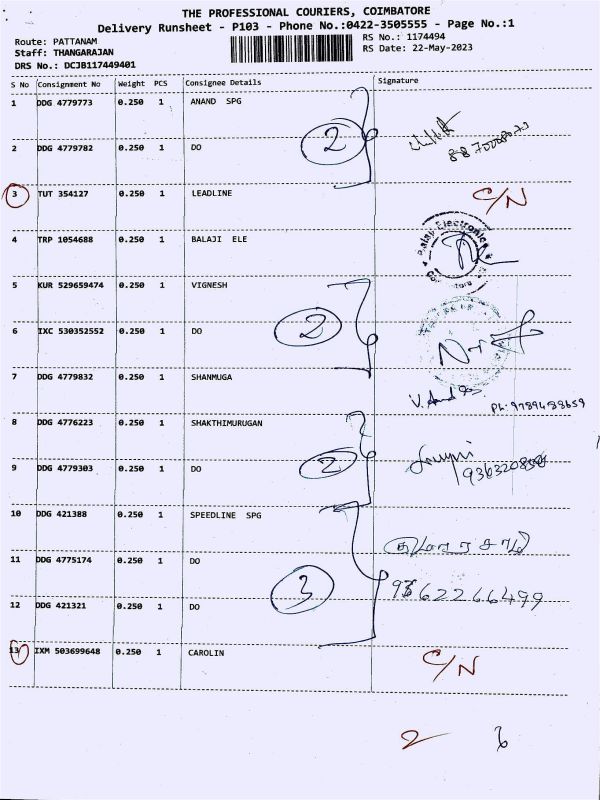 THE PROFESSIONAL COURIERS, COIMBATORE
Delivery Runsheet - P103 - Phone No.:0422-3505555 - Page No.:1
Route: PATTANAM
RS No.: 1174494
Staff: THANGARAJAN
RS Date: 22-May-2023
DRS No.: DCJB117449401
S No Consignment No Weight PCS Consignee Details Signature
1 DDG 4779773 0.250 1 ANAND SPG
2 DDG 4779782 0.250 1 DO
2
3 TUT 354127 0.250 1 LEADLINE C/N
4 TRP 1054688 0.250 1 BALAJI ELE
5 KUR 529659474 0.250 1 VIGNESH
2
6 IXC 530352552 0.250 1 DO
7 DDG 4779832 0.250 1 SHANMUGA
Ph: 9789488659
8 DDG 4776223 0.250 1 SHAKTHIMURUGAN
9 DDG 4779303 0.250 1 DO
2
10 DDG 421388 0.250 1 SPEEDLINE SPG
11 DDG 4775174 0.250 1 DO
3
9362266499
12 DDG 421321 0.250 1 DO
13 IXM 503699648 0.250 1 CAROLIN C/N
2